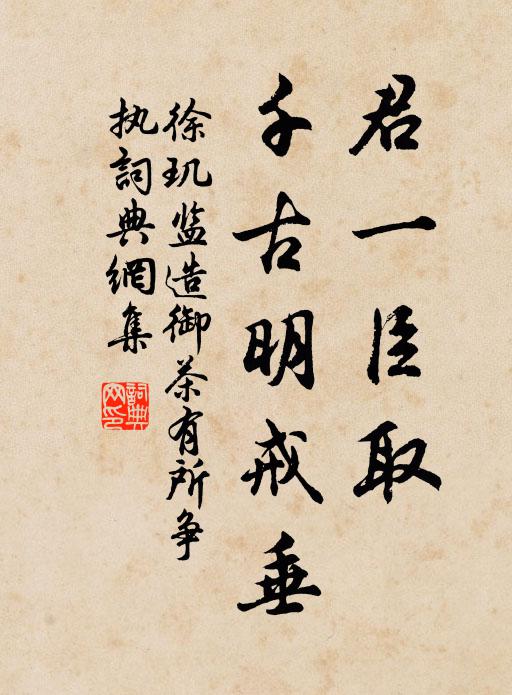 君一臣取
千古明戒垂
徐玑监造御茶有所争
执詞典網集
詞典
网印